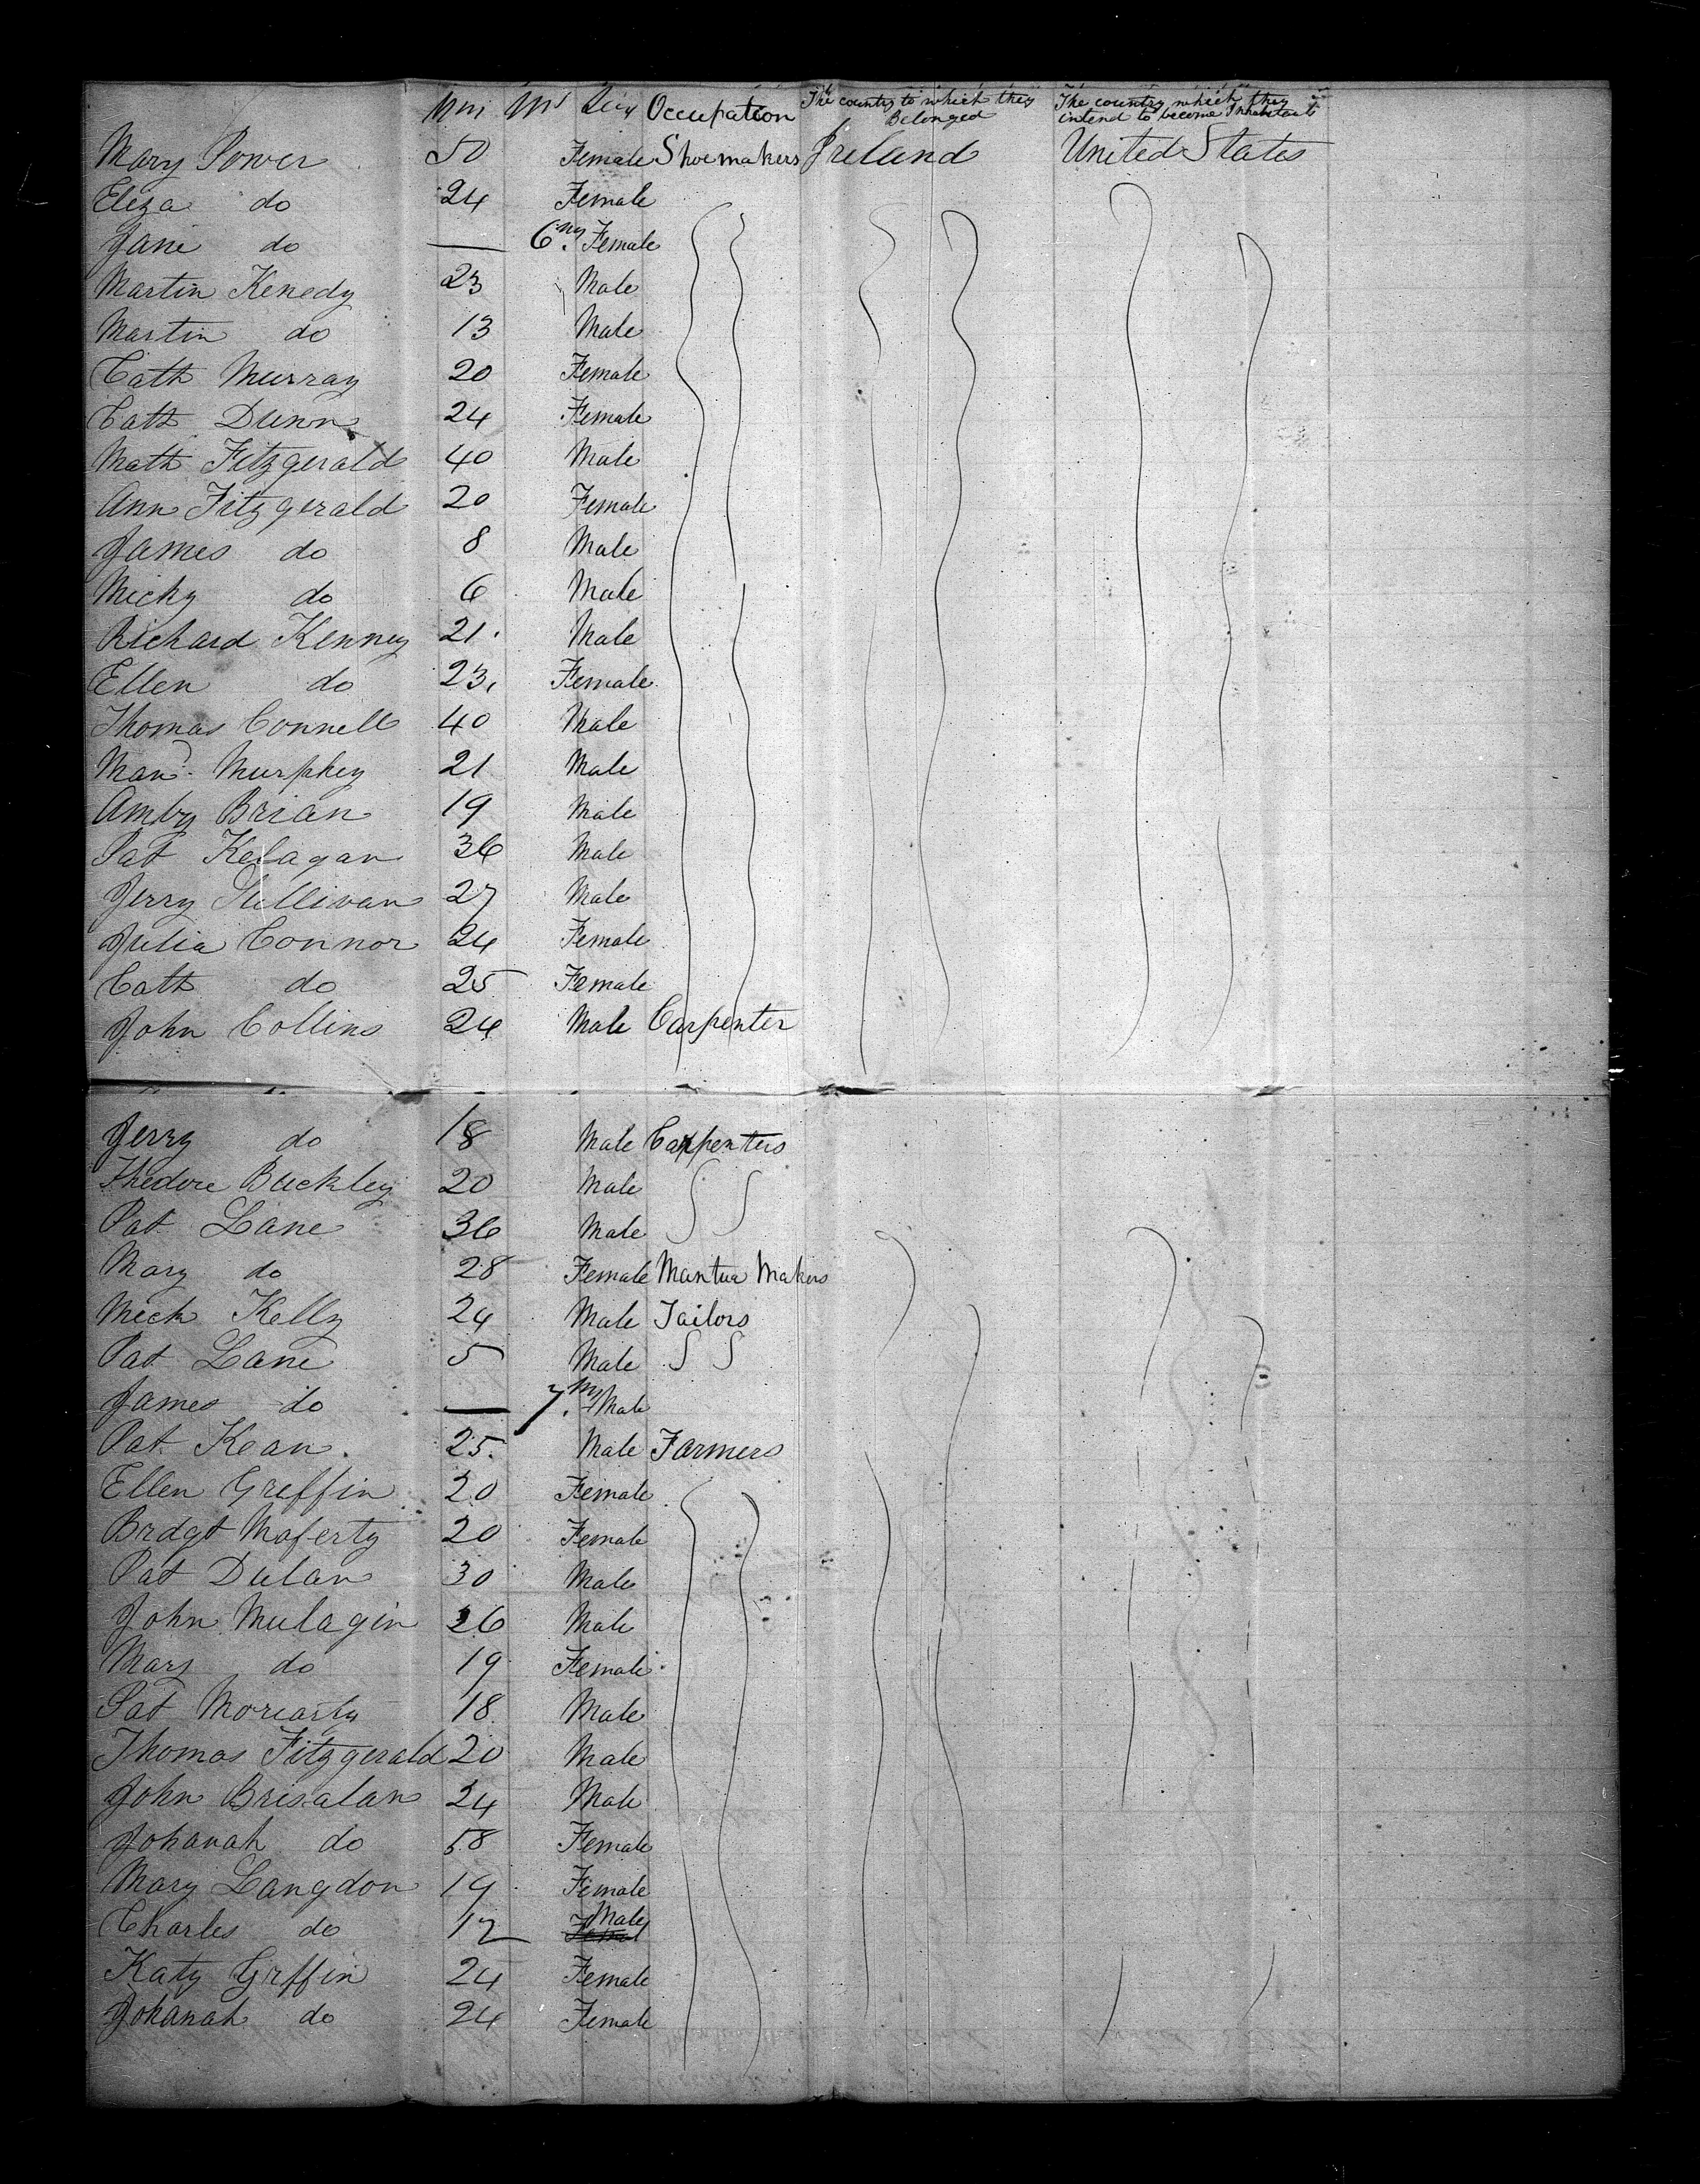 Occupation The country to which they Belonged The country which they intend to become Inhabitants
Mary Power 50 Female Shoemakers Ireland United States
Eliza do 24 Female
Jane do — 6 ms. Female
Martin Kenedy 23 Male
Martin do 13 Male
Cath Murray 20 Female
Cath Dunn 24 Female
Math Fitzgerald 40 Male
Ann Fitzgerald 20 Female
James do 8 Male
Micky do 6 Male
Richard Kenney 21 Male
Ellen do 23 Female
Thomas Connell 40 Male
Man Murphey 21 Male
Amby Brian 19 Male
Pat Kelagan 36 Male
Jerry Sullivan 27 Male
Julia Connor 24 Female
Cath do 25 Female
John Collins 24 Male Carpenter
Jerry do 18 Male Carpenters
Thedore Buckley 20 Male
Pat Lane 36 Male
Mary do 28 Female Mantua Makers
Mick Kelly 24 Male Tailors
Pat Lane 5 Male
James do — 7 m. Male
Pat Kean 25 Male Farmers
Ellen Greffin 20 Female
Brdgt Moferty 20 Female
Pat Dulan 30 Male
John Mulagin 26 Male
Mary do 19 Female
Pat Moriarty 18 Male
Thomas Fitzgerald 20 Male
John Brisalan 24 Male
Johanah do 58 Female
Mary Langdon 19 Female
Charles do 12 Male
Katy Grffin 24 Female
Johanah do 24 Female